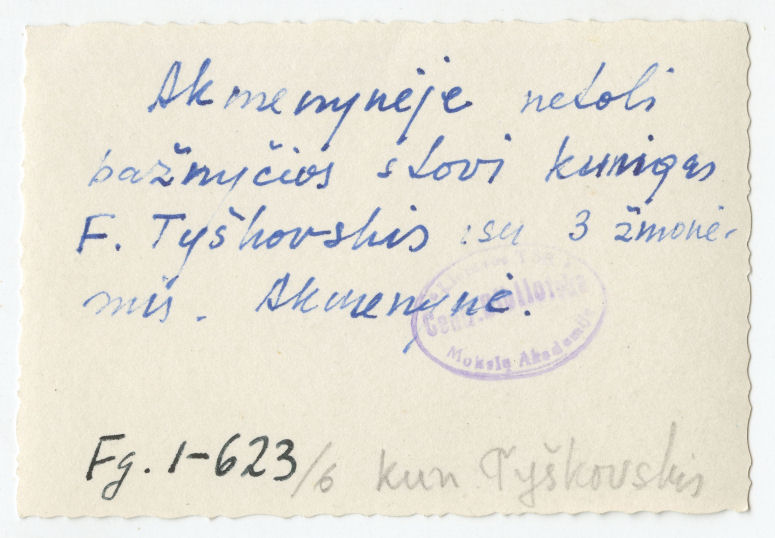 Akmenynėje netoli
bažnyčios stovi kunigas
F. Tyškovskis su 3 žmonė-
mis. Akmenynė.
Centr. Biblioteka
Mokslų Akademija
Fg. 1-623/6 kun. Tyškovskis